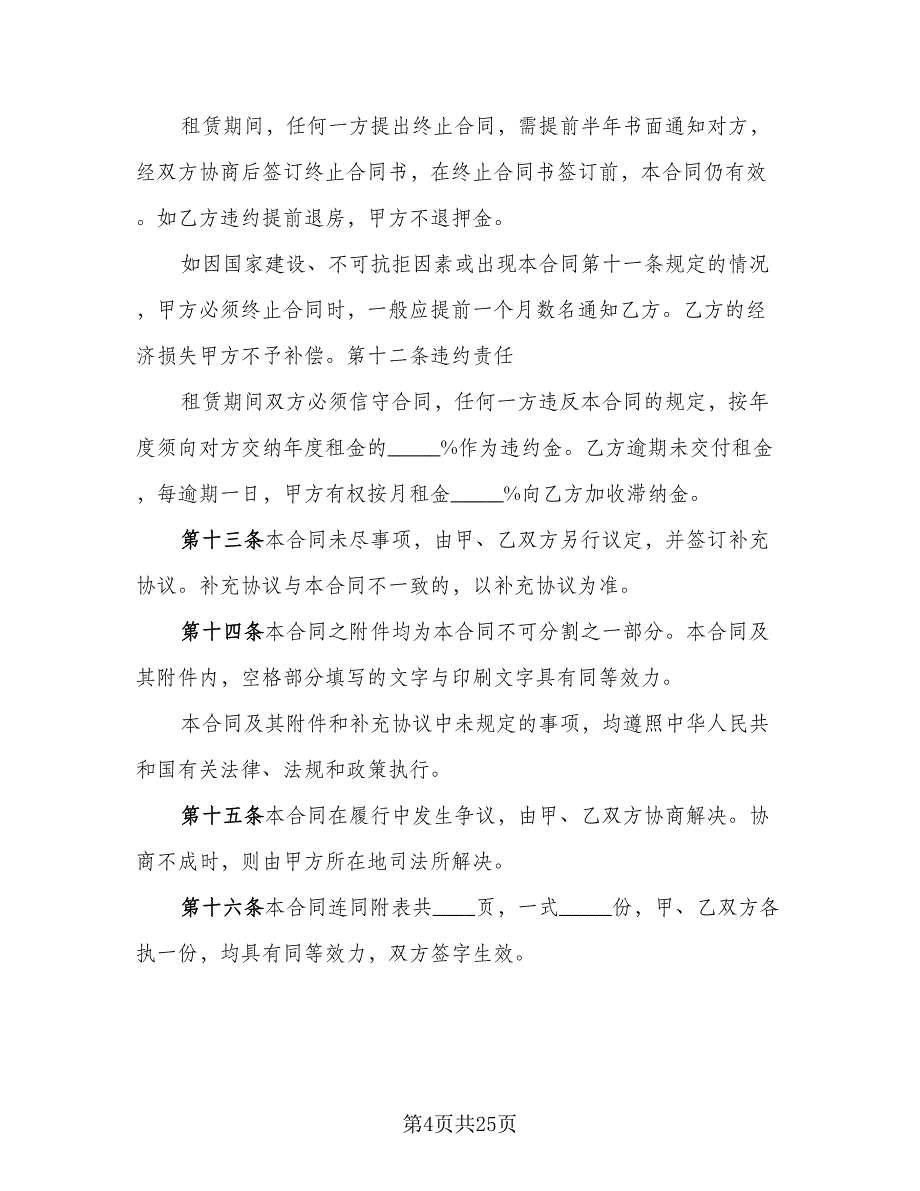 租赁期间，任何一方提出终止合同，需提前半年书面通知对方，
经双方协商后签订终止合同书，在终止合同书签订前，本合同仍有效
。如乙方违约提前退房，甲方不退押金。
如因国家建设、不可抗拒因素或出现本合同第十一条规定的情况
，甲方必须终止合同时，一般应提前一个月数名通知乙方。乙方的经
济损失甲方不予补偿。第十二条违约责任
租赁期间双方必须信守合同，任何一方违反本合同的规定，按年
度须向对方交纳年度租金的_____%作为违约金。乙方逾期未交付租金
，每逾期一日，甲方有权按月租金_____%向乙方加收滞纳金。
第十三条本合同未尽事项，由甲、乙双方另行议定，并签订补充
协议。补充协议与本合同不一致的，以补充协议为准。
第十四条本合同之附件均为本合同不可分割之一部分。本合同及
其附件内，空格部分填写的文字与印刷文字具有同等效力。
本合同及其附件和补充协议中未规定的事项，均遵照中华人民共
和国有关法律、法规和政策执行。
第十五条本合同在履行中发生争议，由甲、乙双方协商解决。协
商不成时，则由甲方所在地司法所解决。
第十六条本合同连同附表共____页，一式_____份，甲、乙双方各
执一份，均具有同等效力，双方签字生效。
第4页共25页